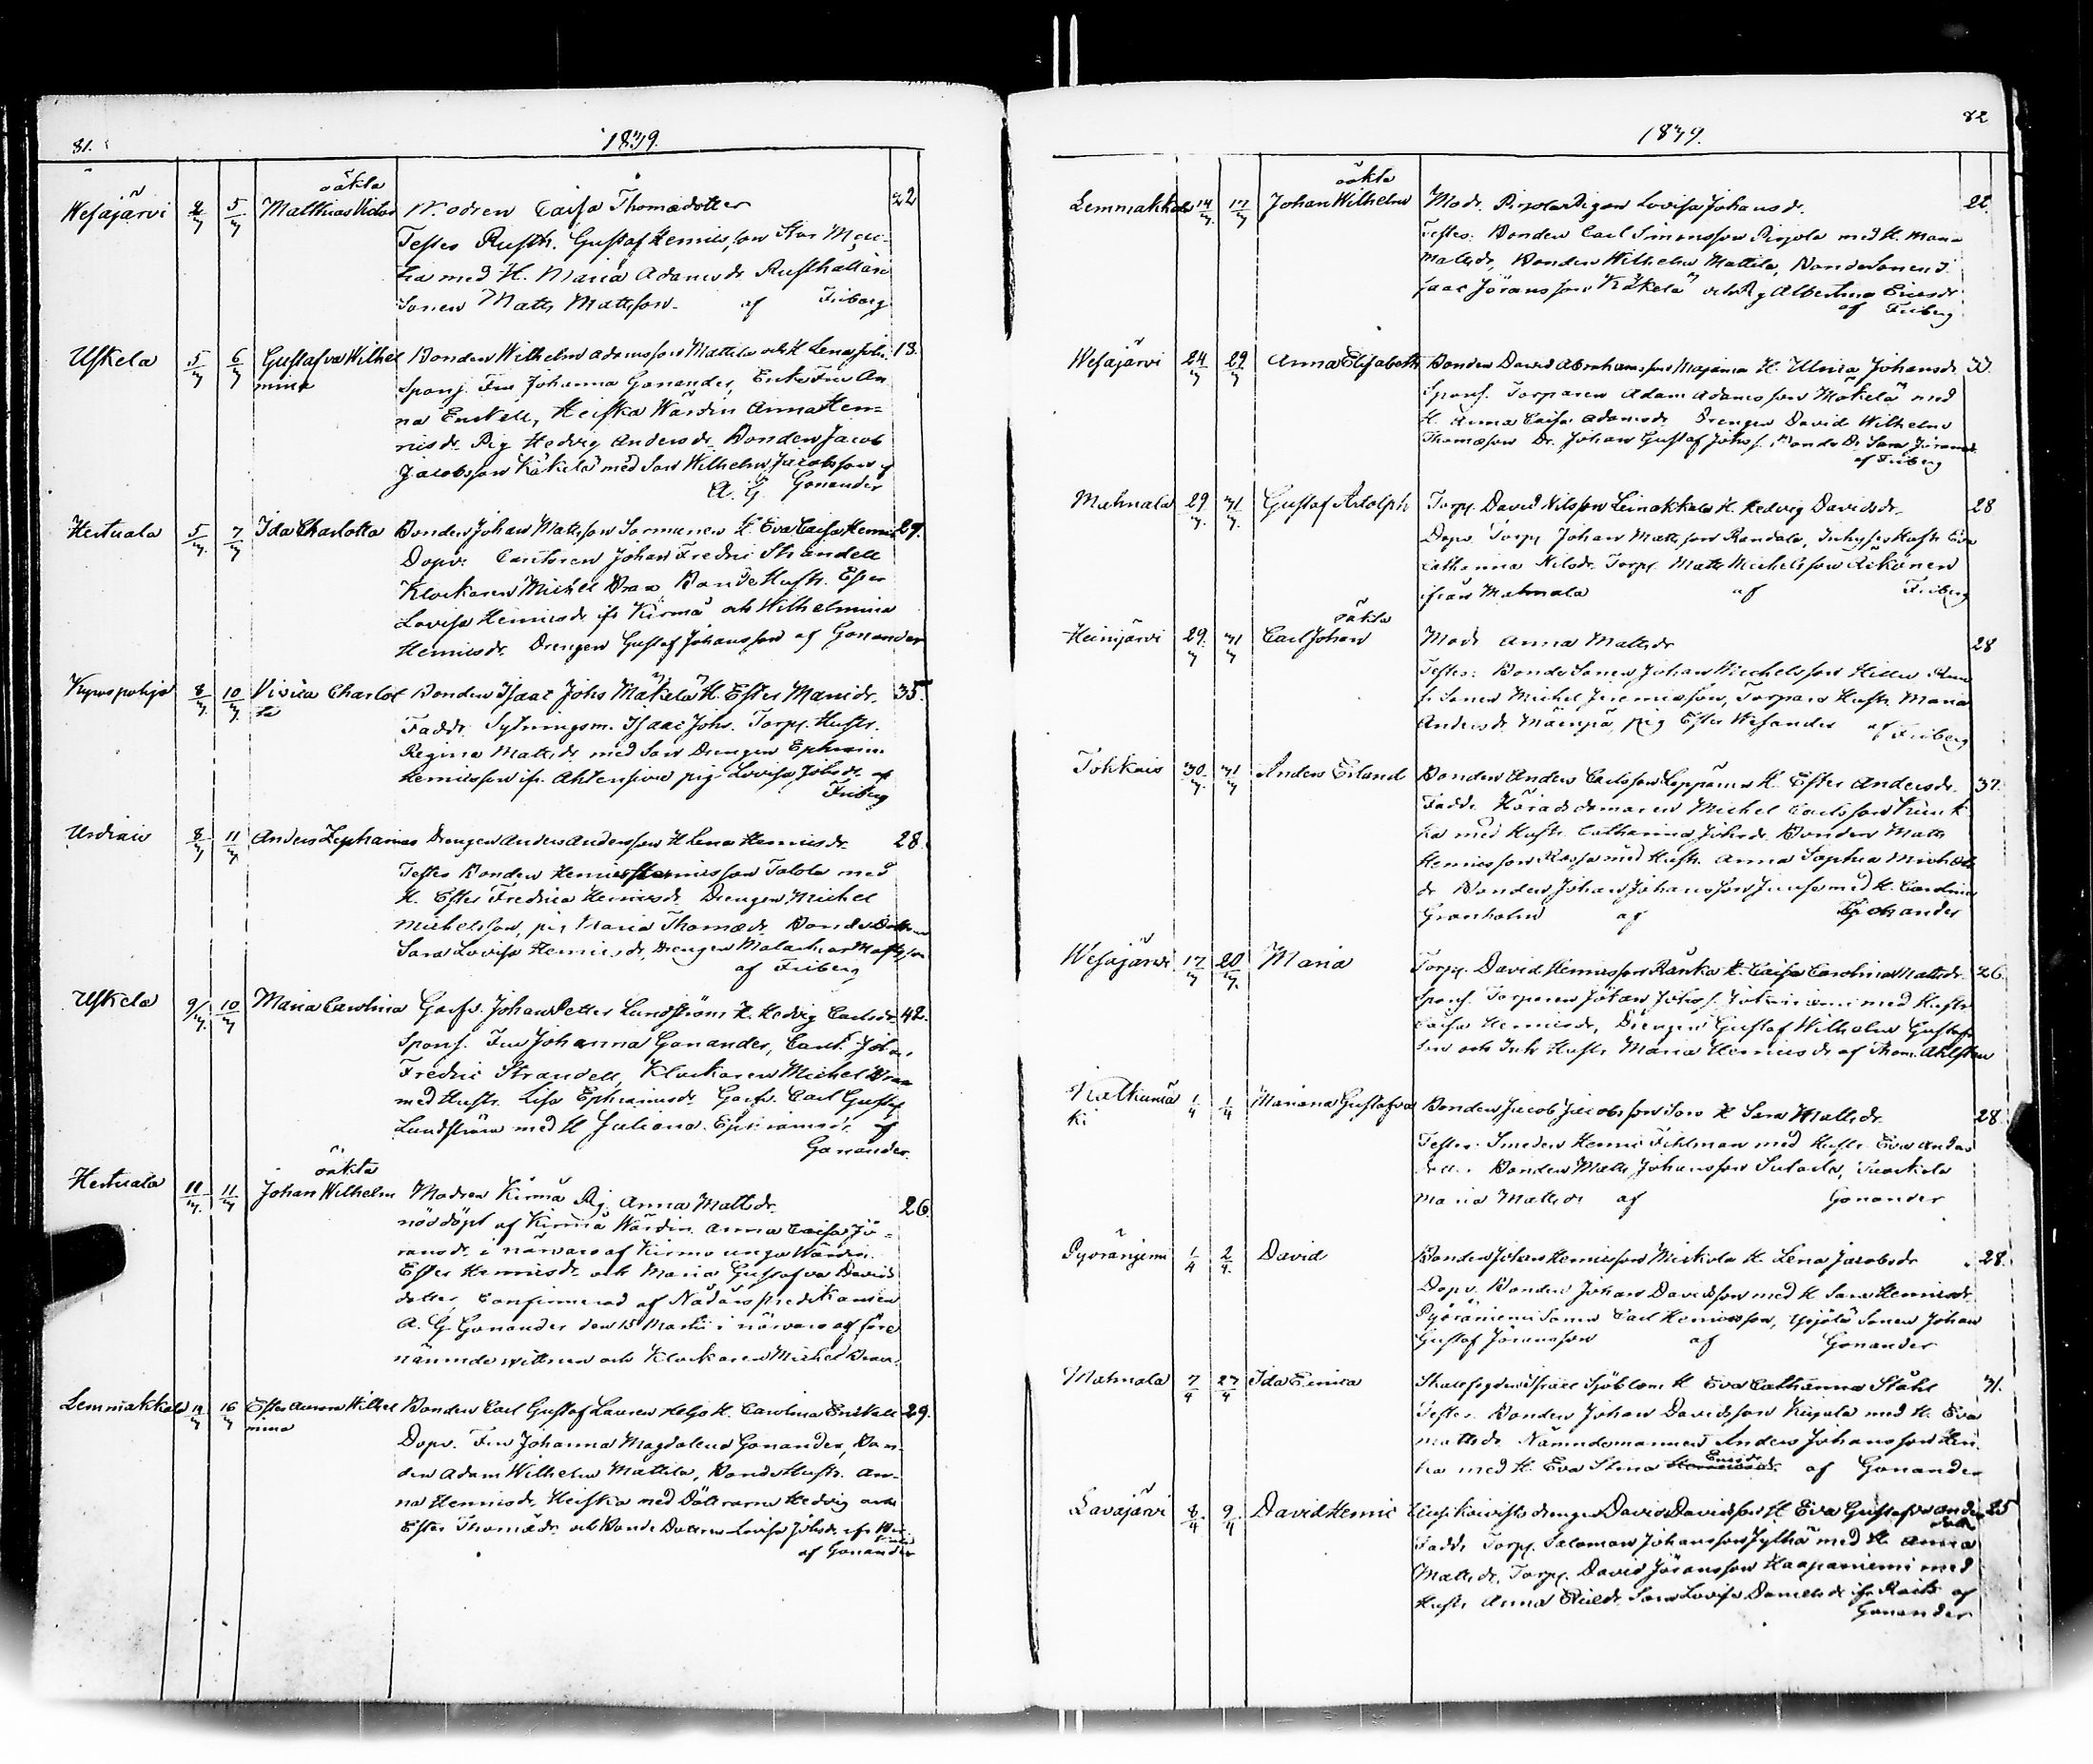 81.
1839.
Wesajärvi 4/3 5/3 oäkta Matthias Victor Modren Caisa Thomædotter 22
Testes Rusth. Gustaf Henricsson Stor
med H. Maria Adamsdr Rusthållare
Sonen Matts Mattsson af Friberg
Uskela 5/3 6/3 Gustafva Wilhel Bonden Wilhelm Adamsson Mattila och H. Lena Johs: 13.
mina Spons. Fru Johanna Ganander, Enke Fru An
na Enckell, Heiska Wärdin Anna Hen=
ricsdr. Pig. Hedvig Andersdr. Bonden Jacob
Jacobsson Käkelä med Son Wilhelm Jacobsson af
A. G. Ganander
Hertuala 5/3 7/3 Ida Charlotta Bonden Johan Mattsson Sormunen H. Eva Caisa Henricsdr 29.
Dopv: Cantoren Johan Fredric Strandell
Klockaren Michel Brax, Bonde Hustr. Ester
Lovisa Henricsdr ifr Kirmä och Wilhelmina
Henricsdr. Drengen Gustaf Johansson af Ganander
Kyröspohja 8/3 10/3 Vivica Charlot Bonden Isaac Johs Mäkelä H. Ester Mariædr. 35.
ta Faddr. Sytningsm. Isaac Johs. Torp. Hustr.
Regina Mattsdr. med Son Drengen Ephraim
Henricsson ifr. Ahtensivu pig. Lovisa Johsdr. af
Friberg
8/3 11/3 Anders Zephanias Drengen Anders Andersson H Lena Henricsdr. 28.
Testes Bonden Henric Henricsson Talola med
H. Ester Fredrica Henricsdr. Drengen Michel
Michelsson, pig. Maria Thomædr. Bonde Dottren
Sara Lovisa Henricsdr, Drengen Malachias Mattsson
af Friberg
Uskela 9/3 10/3 Maria Carolina Garfv. Johan Petter Lundström H. Hedvig Carlsdr. 42.
Spons. Fru Johanna Ganander, Cant. Joh.
Fredric Strandell, Klockaren Michel Brax
med Hustr. Lisa Ephraimsdr. Garfv. Carl Gustaf
Lundström med H Juliana Ephraimsdr. af
Ganander.
Hertuala 11/3 11/3 oäkta Johan Wilhelm Modren Kirmä Pig. Anna Mattsdr. 26.
nöddöpt af Kirmä Wärdin. Anna Caisa Jö=
ransdr. i närvaro af Kirmä unga Wärdin
Ester Henricsdr. och Maria Gustafva Davids
dotter, Confirmerad af Nådårs predikanten
A. G. Ganander den 15 Martii i närvaro af före
nämnde vittnen och Klockaren Michel Brax.
Lemmakkala 14/3 16/3 Ester Aurora Wilhel Bonden Carl Gustaf Lauren Heljo H. Carolina Enckell 29.
mina Dopv. Fru Johanna Magdalena Ganander, Bon
den Adam Wilhelm Mattila, Bonde Hustr. An-
na Henricsdr, Heiska med Döttrarna Hedvig och
Ester Thomædr. och Bonde Dottren Lovisa Johsdr. ifr
af Ganander
82
1839.
Lemmakkala 14/3 17/3 oäkta Johan Wilhelm Modr. Pirjola Pigan Lovisa Johansdr. 22.
Testes: Bonden Carl Simonsson Pirjola med H. Maria
Mattsdr, Bonden Wilhelm Mattila, Bondesonen I
saac Jöransson Käkelä och Pig Albertina Ericsdr
af Friberg
Wesajärvi 24/3 29/3 Anna Elisabeth Bonden David Abrahamsson Majamaa H. Ulrica Johansdr. 33.
Spons. Torparen Adam Adamsson Mäkelä med
H. Anna Caisa Adamsdr. Drengen David Wilhelm
Thomasson Dr. Johan Gustaf Johss. Bonde Dr. Sara Jöransdr.
af Friberg
Mahnala 29/3 31/3 Gustaf Adolph Torp. David Nilsson Leinakkala H. Hedvig Davidsdr. 28
Dopv. Torp. Johan Mattsson Randala, Inhyses Hustr. Eva
Catharina Nilsdr. Torp. Matts Michelsson Räikönen
ifrån Mahnala af Friberg
Heinijärvi 29/3 31/3 oäkta Carl Johan Modr. Anna Mattsdr 28
Testes: Bonde Sonen Johan Michelsson
Sonen Michel Jeremiasson, Torpare Hustr. Maria
Andersdr. Mäenpä, pig Ester Wesander af Friberg
Tokkais 30/3 31/3 Anders Erland Bonden Anders Carlsson Leppänen H. Ester Andersdr. 37.
Faddr. Häradsdomaren Michel Carlsson
ka med Hustr. Catharina Johsdr. Bonden Matts
Henricsson med Hustr. Anna Sophia Michels
dr. Bonden Johan Johansson Junnila med H. Carolina
Granholm af Ganander
Wesajärvi 17/3 20/3 Maria Torp. David Henricsson Ränkä H. Caisa Carolina Mattsdr. 26.
Spons. Torparen Johan Johss. med Hustr.
Caisa Henricsdr, Drengen Gustaf Wilhelm Gustafs
son och Inh. Hustr. Maria Henricsdr. af Thom. Ahlstén
Kalkunmä 1/4 1/4 Mariana Gustafva Bonden Jacob Jacobsson Saro H Sara Mattsdr. 28
ki Testes. Smeden Henric Fihlman med Hustr. Eva Anders
dott. Bonden Matts Johansson Sulaola,
Maria Mattsdr af Ganander
Pyöräniemi 1/4 2/4 David Bonden Johan Henricsson Mickola H. Lena Jacobsdr 28.
Dopv. Bonden Johan Davidsson med H Sara Henricsdr.
Pyöräniemi Sonen Carl Henricsson, Yrjölä Sonen Johan
Gustaf Jöransson af Ganander
Mahnala 7/4 27/4 Ida Erica Skallfogden Israel Sjöblom H Eva Catharina Ståhl 31.
Testes. Bonden Johan Davidsson Kuljala med H. Eva
Mattsdr. Nämndemannen Anders Johansson
ka med H. Eva Stina Ericsdr af Ganander
Lavajärvi 8/4 9/4 David Henric drengen David Davidsson H Eva Gustafva Anders 25
dotter
Faddr. Torp. Salomon Johansson Jylhä med H. Anna
Mattsdr, Torp. David Jöransson Haapaniemi med
Hustr Anna Sara Lovisa Danielsdr ifr. af
Ganander